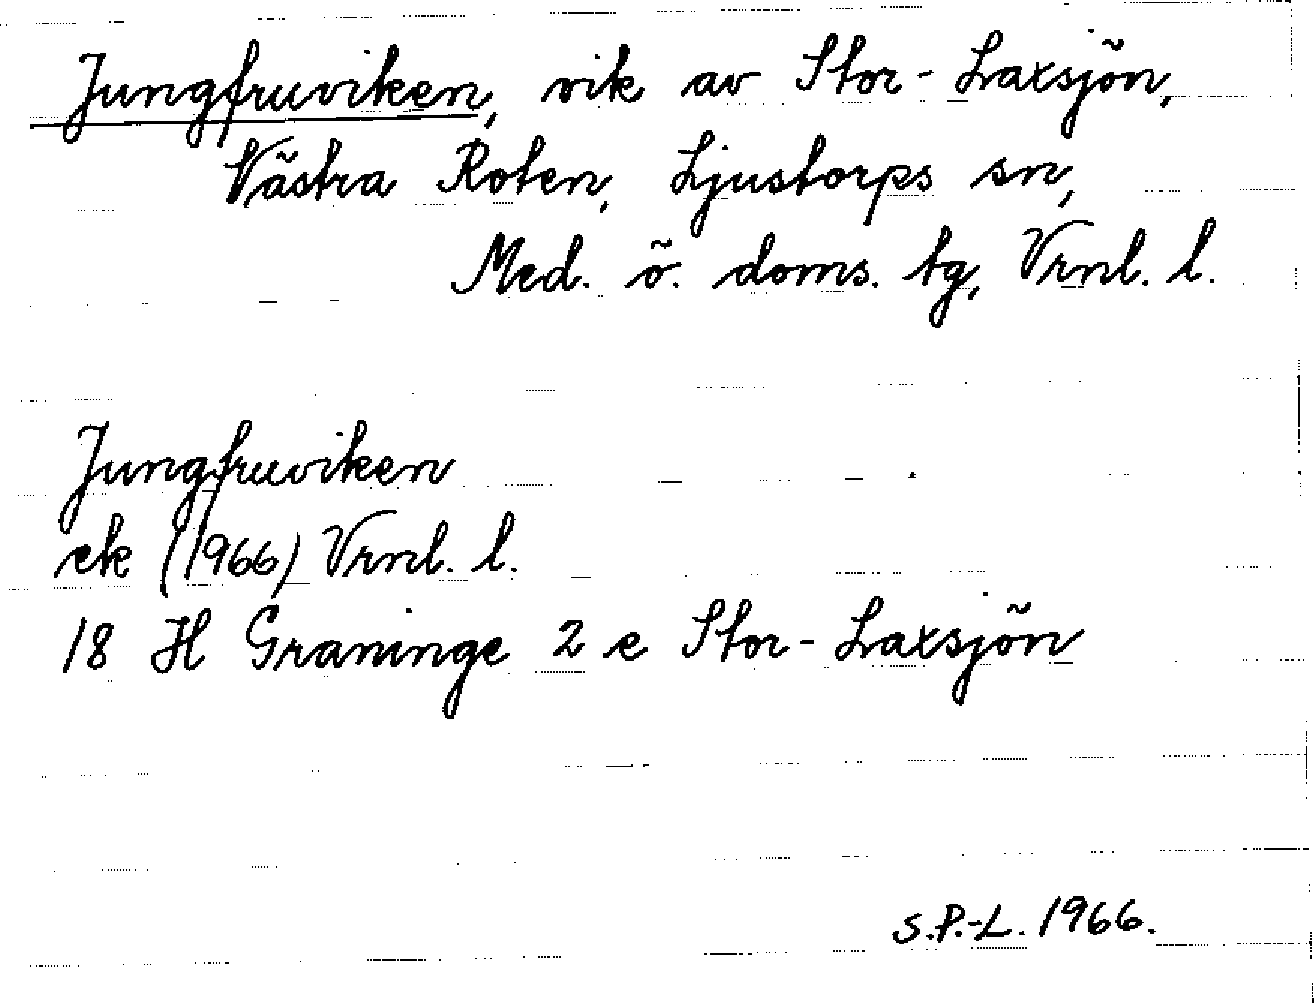 Jungfruviken, vik av Stor-Laxsjön,
Västra Roten, Ljustorps sn,
Med. ö. doms. tg, Vrnl. l.
Jungfruviken
ek (1966) Vrnl. l.
18 H Graninge 2 e Stor-Laxsjön
S.P.-L. 1966.